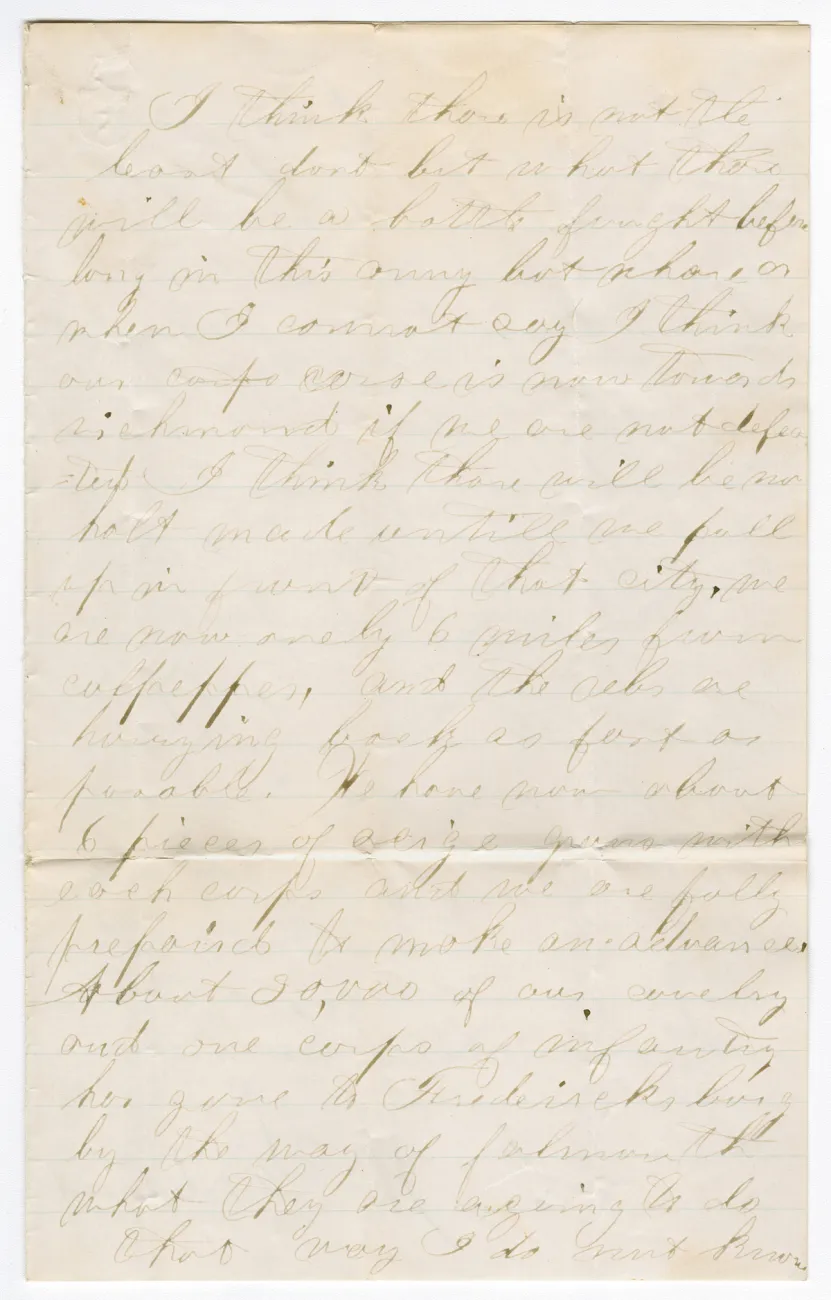 I think thare is not the
least dout but what thare
will be a battle fought before
long in this army but whare or
when I connot say I think
our corps corse is now towards
richmond if we are not defea
-ted I think thare will be no
halt made untill we pull
up in frunt of that city, we
are now onely 6 miles from
culpepper, and the rebs are
hurrying back as fast as
posable. We have now about
6 pieces of seige guns with
each corps and we are fully
prepaired to make an advance.
About 20,000 of our cavelry
and one corps of infantry
has gone to Fredericksburg
by the way of falmouth
what they are agoing to do
that way I do not know